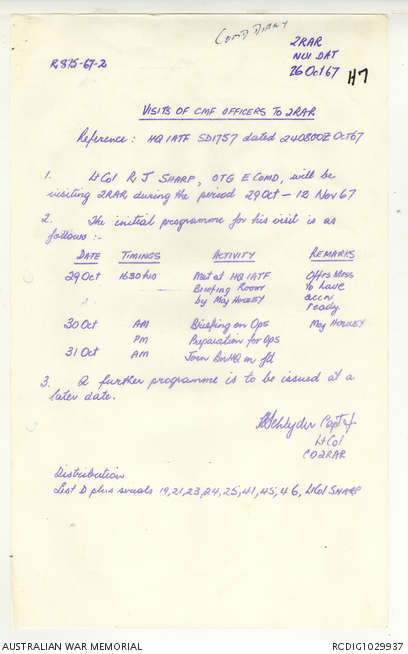 COMD DIARY
2RAR
R875-67-2
NUI DAT
26 Oct 67
H7
VISITS OF CMF OFFICERS TO 2RAR
Reference : HQ 1ATF SD1757 dated 240800Z Oct67
1. Lt Col R J SHARP, OTG E COMD, will be
visiting 2RAR during the period 29 Oct - 12 Nov 67
2. The initial programme for his visit is as
follows :-
DATE TIMINGS ACTIVITY REMARKS
29 Oct 1630 hrs Met at HQ 1ATF Offrs Mess
Briefing Room to have
by Maj accn
ready.
30 Oct AM Briefing on Ops Maj
PM Preparation for Ops
31 Oct AM Join BnHQ in fd
3. A further programme is to be issued at a
later date.
Capt
Lt Col
CO 2RAR
Distribution
List D plus serials 19, 21, 23, 24, 25, 41, 45, 46, Lt Col SHARP
AUSTRALIAN WAR MEMORIAL
RCDIG1029937